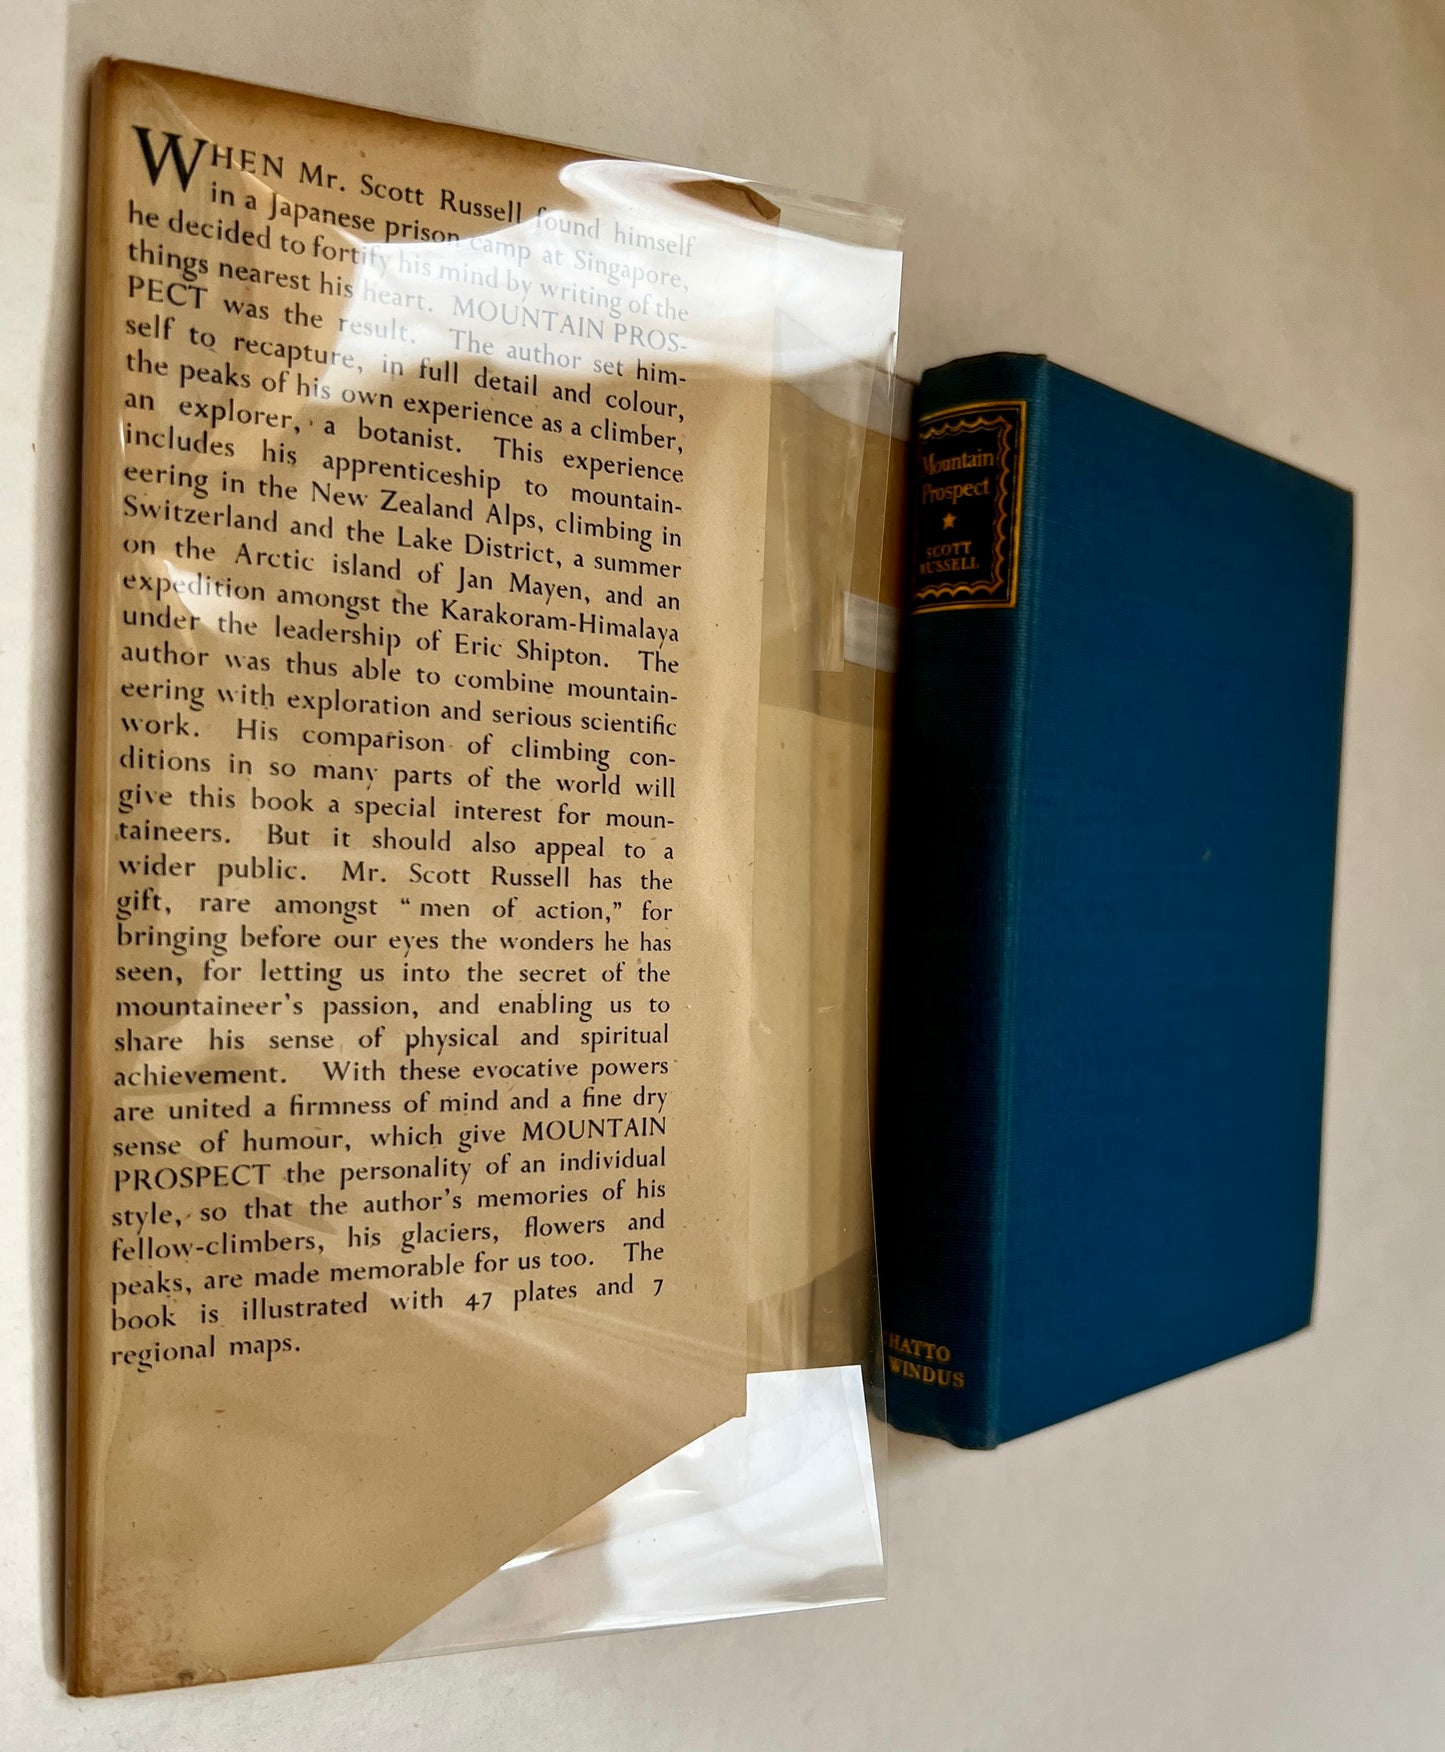 WHEN Mr. Scott Russell found himself
in a Japanese prison camp at Singapore,
he decided to fortify his mind by writing of the
things nearest his heart. MOUNTAIN PROS-
PECT was the result. The author set him-
self to recapture, in full detail and colour,
the peaks of his own experience as a climber,
an explorer, a botanist. This experience
includes his apprenticeship to mountain-
eering in the New Zealand Alps, climbing in
Switzerland and the Lake District, a summer
on the Arctic island of Jan Mayen, and an
expedition amongst the Karakoram-Himalaya
under the leadership of Eric Shipton. The
author was thus able to combine mountain-
eering with exploration and serious scientific
work. His comparison of climbing con-
ditions in so many parts of the world will
give this book a special interest for moun-
taineers. But it should also appeal to a
wider public. Mr. Scott Russell has the
gift, rare amongst “men of action,” for
bringing before our eyes the wonders he has
seen, for letting us into the secret of the
mountaineer's passion, and enabling us to
share his sense of physical and spiritual
achievement. With these evocative powers
are united a firmness of mind and a fine dry
sense of humour, which give MOUNTAIN
PROSPECT the personality of an individual
style, so that the author's memories of his
fellow-climbers, his glaciers, flowers and
peaks, are made memorable for us too. The
book is illustrated with 47 plates and 7
regional maps.
Mountain
Prospect
SCOTT
RUSSELL
HATTO
WINDUS